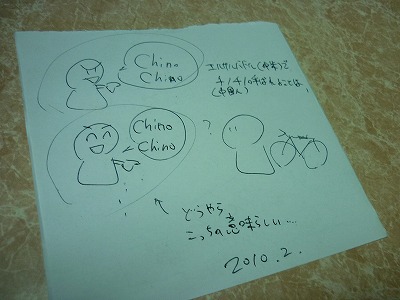 Chino
Chino
エルサルバドル(中米)で
チノチノ呼ばれることは
(中国人)
Chino
Chino
?
どうやら
こっちの意味らしい…
2010.2.